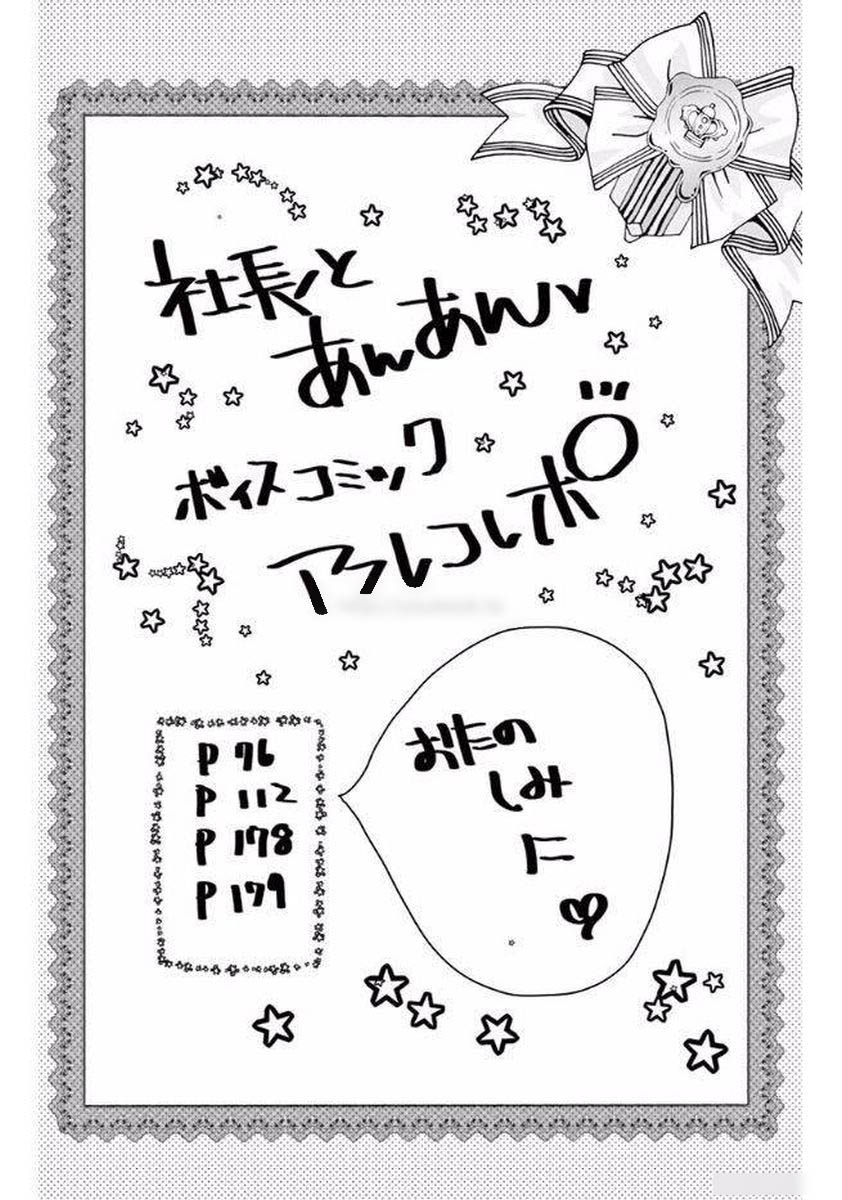 社長と
あんあん♥
ボイスコミック
アフレコレポ!!
P 76
P 112
P 178
P 179
おたの
しみ
に
♥